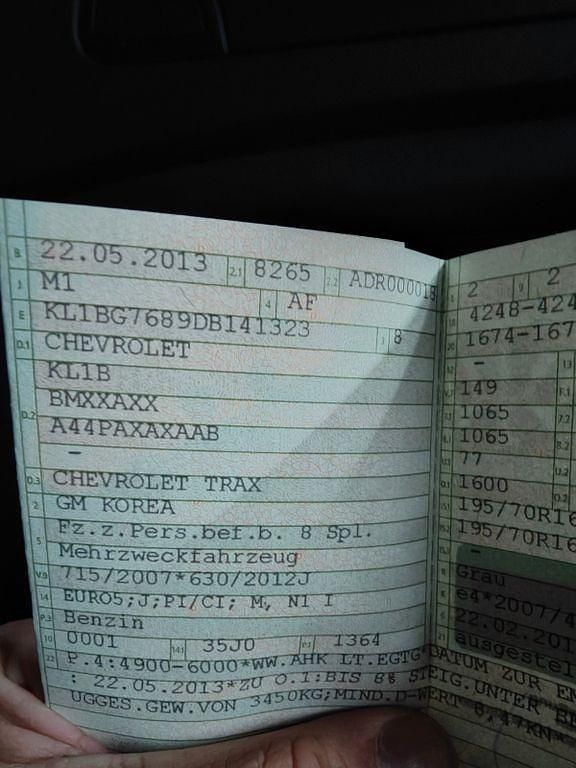 B 22.05.2013 2.1 8265 2.2 ADR000018
J M1 4 AF
E KL1BG7689DB141323 3 8
D.1 CHEVROLET
KL1B
D.2 BMXXAXX
A44PAXAXAAB
-
D.3 CHEVROLET TRAX
2 GM KOREA
5 Fz.z.Pers.bef.b. 8 Spl.
Mehrzweckfahrzeug
V.9 715/2007*630/2012J
14 EURO5;J;PI/CI; M, N1 I
P.3 Benzin
10 0001 14.1 35J0 P.1 1364
22 P.4:4900-6000*WW.AHK LT.EGTG*DATUM ZUR EM
: 22.05.2013*ZU O.1:BIS 8% STEIG.UNTER BE
UGGES.GEW.VON 3450KG;MIND.D-WERT 8,47KN*
2 9 2
4248-424
1674-167
-
149
1065
1065
77
1600
195/70R16
195/70R16
-
Grau
e4*2007/4
22.02.201
ausgestel